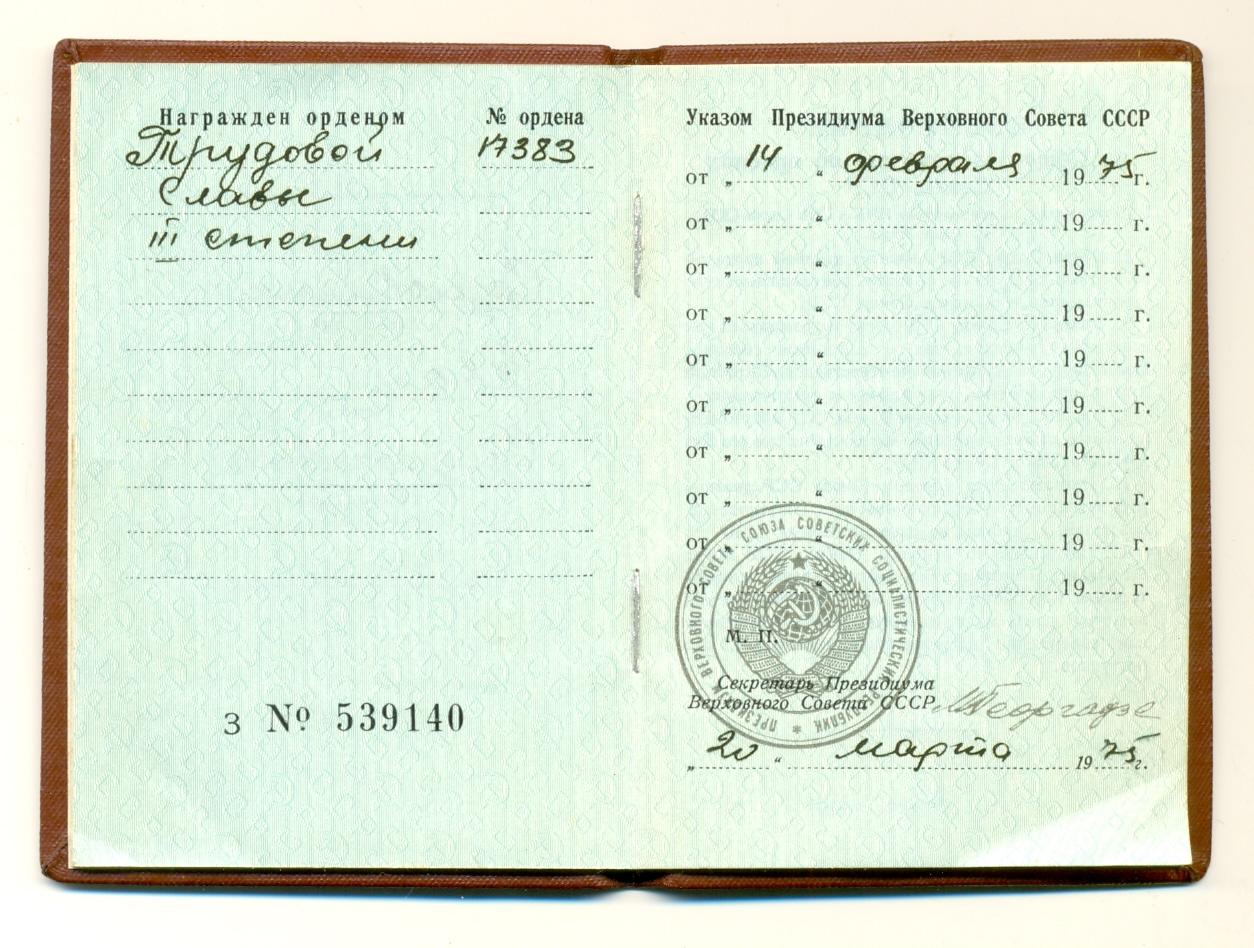 Награжден орденом
Трудовой
Славы
III степени
№ ордена
17383
З № 539140
Указом Президиума Верховного Совета СССР
от „ 14 “ февраля 1975 г.
от „ “ 19 г.
от „ “ 19 г.
от „ “ 19 г.
от „ “ 19 г.
от „ “ 19 г.
от „ “ 19 г.
от „ “ 19 г.
от „ “ 19 г.
от „ “ 19 г.
ПРЕЗИДИУМ ВЕРХОВНОГО СОВЕТА СОЮЗА СОВЕТСКИХ СОЦИАЛИСТИЧЕСКИХ РЕСПУБЛИК *
М. П.
Секретарь Президиума
Верховного Совета СССР МГеоргадзе
„ 20 “ марта 1975 г.